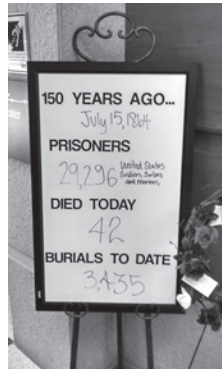 150 YEARS AGO...
July 15, 1864
PRISONERS
29,296 United States
Soldiers, Sailors
and Marines
DIED TODAY
42
BURIALS TO DATE
3435